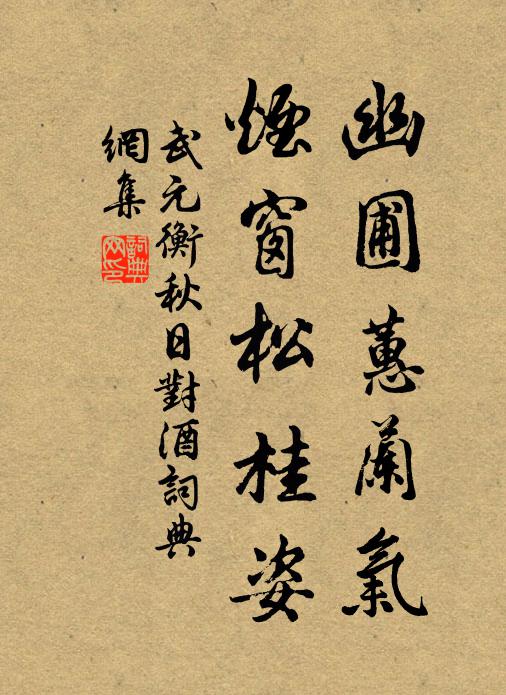 幽圃蕙蘭氣
煙窗松桂姿
武元衡秋日對酒詞典
網集
詞典
網印